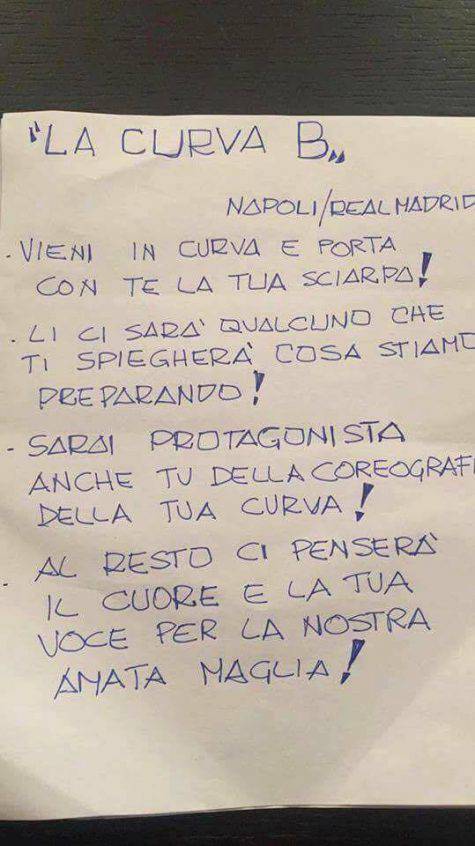 "LA CURVA B"
NAPOLI/REAL MADRID
. VIENI IN CURVA E PORTA
CON TE LA TUA SCIARPA!
. LI CI SARA' QUALCUNO CHE
TI SPIEGHERA' COSA STIAMO
PREPARANDO!
- SARAI PROTAGONISTA
ANCHE TU DELLA COREOGRAFI
DELLA TUA CURVA!
- AL RESTO CI PENSERA'
IL CUORE E LA TUA
VOCE PER LA NOSTRA
AMATA MAGLIA!